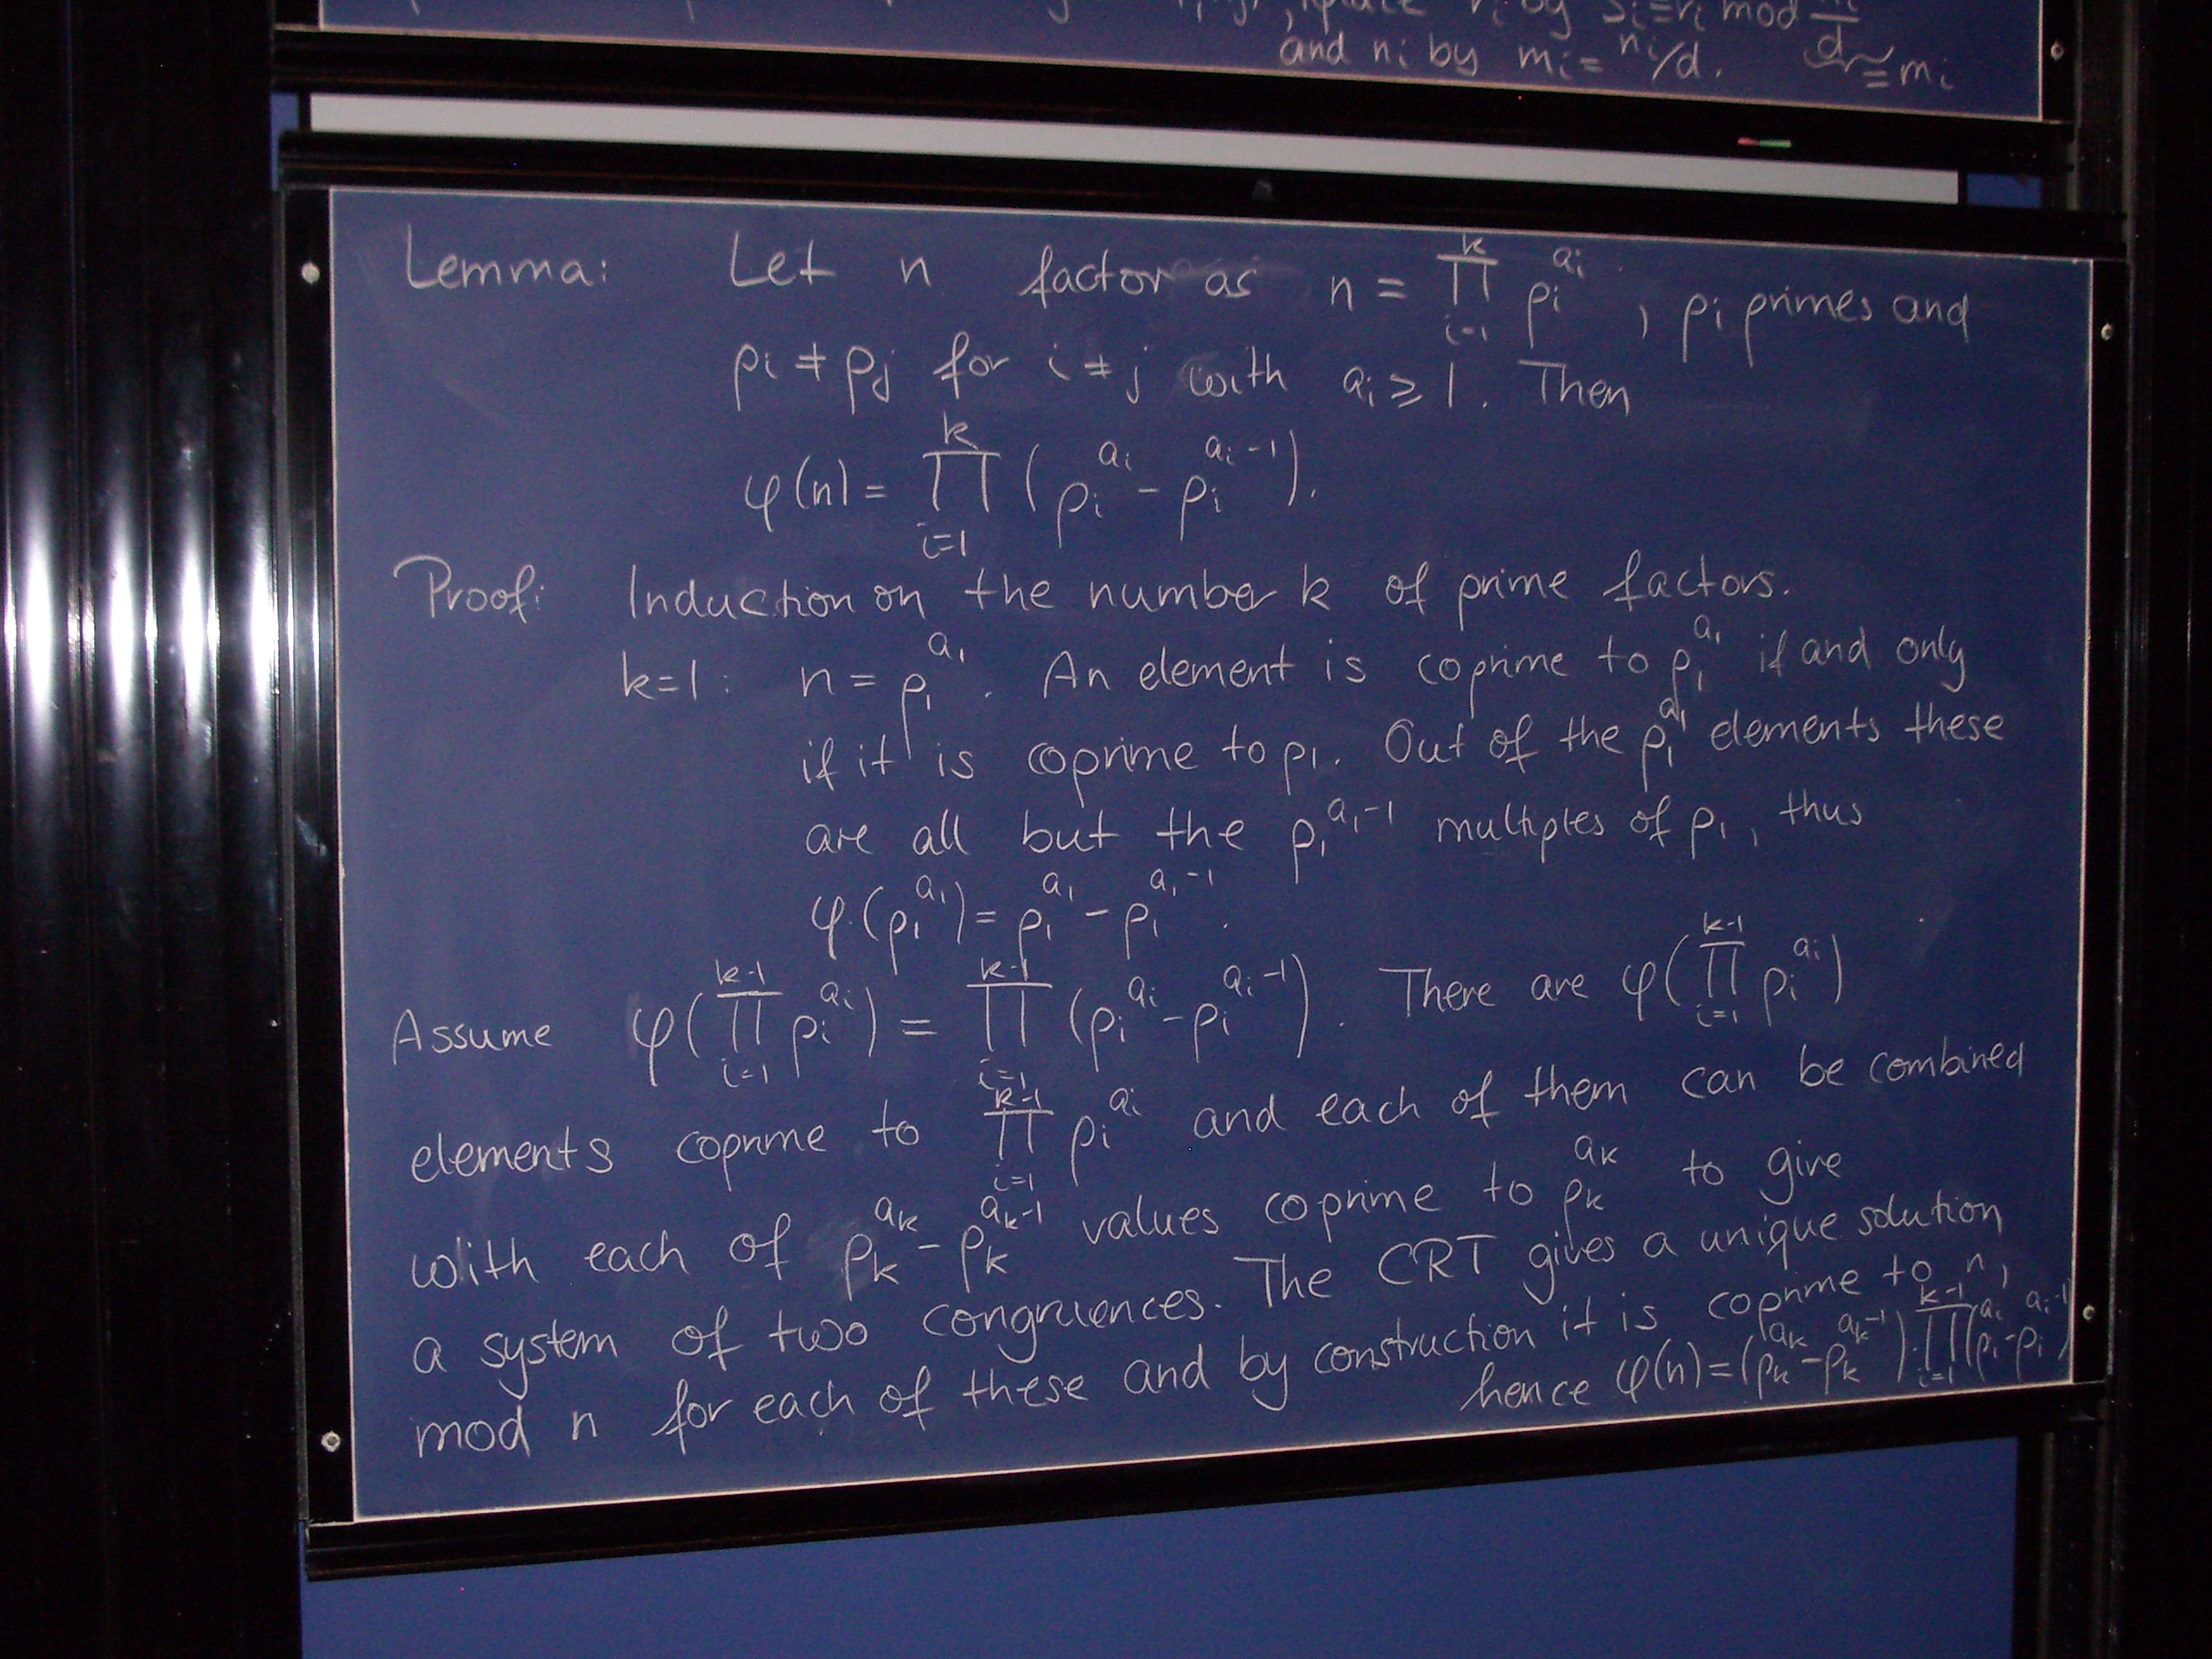 by sᵢ≡rᵢ mod
and nᵢ by mᵢ = nᵢ/d. d =mᵢ
Lemma: Let n factor as n = ∏_{i=1}^{k} pᵢ^{aᵢ}, pᵢ primes and
pᵢ ≠ pⱼ for i ≠ j with aᵢ ⩾ 1. Then
φ(n) = ∏_{i=1}^{k} (pᵢ^{aᵢ} - pᵢ^{aᵢ-1}).
Proof: Induction on the number k of prime factors.
k=1: n = p₁^{a₁}. An element is coprime to p₁^{a₁} if and only
if it is coprime to p₁. Out of the p₁^{a₁} elements these
are all but the p₁^{a₁-1} multiples of p₁, thus
φ(p₁^{a₁}) = p₁^{a₁} - p₁^{a₁-1}.
Assume φ(∏_{i=1}^{k-1} pᵢ^{aᵢ}) = ∏_{i=1}^{k-1} (pᵢ^{aᵢ} - pᵢ^{aᵢ-1}). There are φ(∏_{i=1}^{k-1} pᵢ^{aᵢ})
elements coprime to ∏_{i=1}^{k-1} pᵢ^{aᵢ} and each of them can be combined
with each of pₖ^{aₖ} - pₖ^{aₖ-1} values coprime to pₖ^{aₖ} to give
a system of two congruences. The CRT gives a unique solution
mod n for each of these and by construction it is coprime to n,
hence φ(n) = (pₖ^{aₖ} - pₖ^{aₖ-1}) · ∏_{i=1}^{k-1} (pᵢ^{aᵢ} - pᵢ^{aᵢ-1})